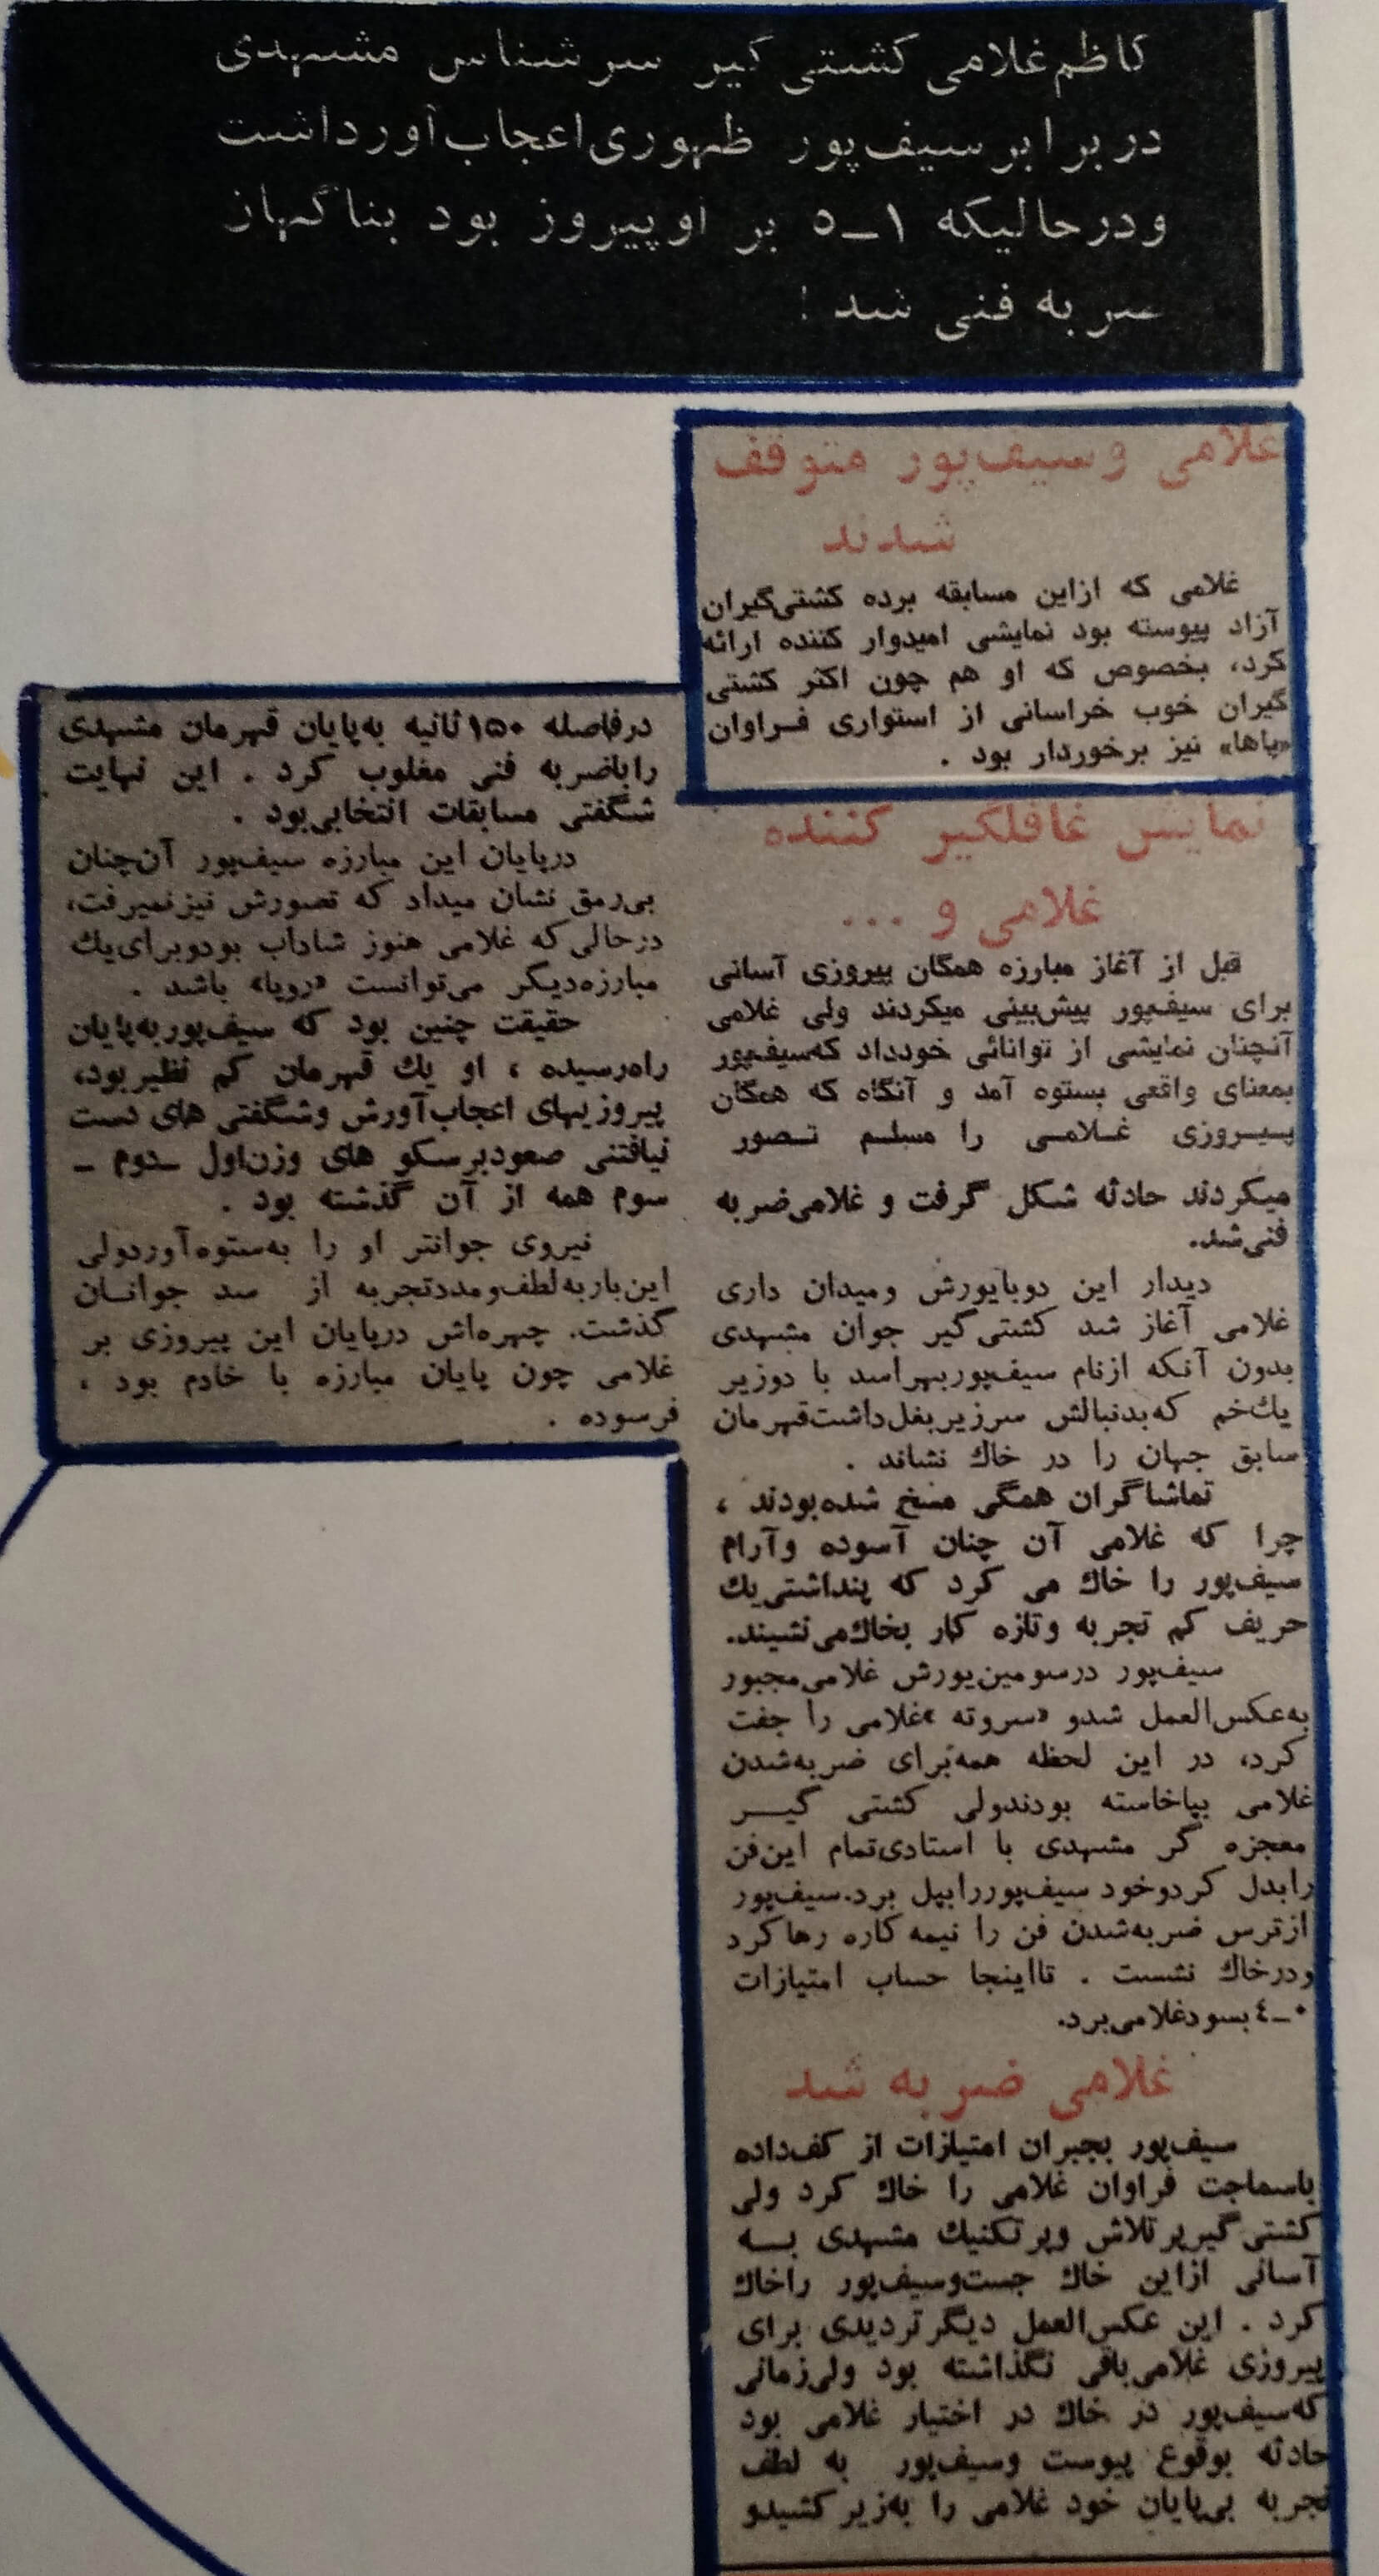 کاظم غلامی کشتی گیر سرشناس مشهدی
در برابر سیف‌پور ظهوری اعجاب‌آور داشت
و در حالیکه ۱ــ۵ بر او پیروز بود بناگهان
ضربه فنی شد !
غلامی و سیف‌پور متوقف
شدند
غلامی که از این مسابقه برده کشتی‌گیران
آزاد پیوسته بود نمایشی امیدوار کننده ارائه
کرد، بخصوص که او هم چون اکثر کشتی
گیران خوب خراسانی از استواری فـراوان
«پاها» نیز برخوردار بود .
نمایش غافلگیر کننده
غلامی و ...
قبل از آغاز مبارزه همگان پیروزی آسانی
برای سیف‌پور پیش‌بینی میکردند ولی غلامی
آنچنان نمایشی از توانائی خود داد که سیف‌پور
بمعنای واقعی بستوه آمد و آنگاه که همگان
پـیـروزی غـلامـی را مسلـم تـصور
میکردند حادثه شکل گرفت و غلامی ضربه
فنی شد.
دیدار این دو با یورش و میدان داری
غلامی آغاز شد کشتی گیر جوان مشهدی
بدون آنکه از نام سیف‌پور بهراسد با دو زیر
یك خم که بدنبالش سر زیر بغل داشت قهرمان
سابق جهان را در خاك نشاند .
تماشاگران همگی مسخ شده بودند ،
چرا که غلامی آن چنان آسوده و آرام
سیف‌پور را خاك می کرد که پنداشتی یك
حریف کم تجربه و تازه کار بخاك می‌نشیند.
سیف‌پور در سومین یورش غلامی مجبور
به عکس‌العمل شد و «سر و ته» غلامی را جفت
کرد، در این لحظه همه برای ضربه شدن
غلامی بپاخاسته بودند ولی کشتی گیـــر
معجزه گر مشهدی با استادی تمام این فن
را بدل کرد و خود سیف‌پور را بپل برد. سیف‌پور
از ترس ضربه شدن فن را نیمه کاره رها کرد
و در خاك نشست . تا اینجا حساب امتیازات
۰ــ٤ بسود غلامی برد.
غلامی ضربه شد
سیف‌پور بجبران امتیازات از کف داده
با سماجت فراوان غلامی را خاك کرد ولی
کشتی گیر پر تلاش و پر تکنیك مشهدی بــه
آسانی از این خاك جست و سیف‌پور را خاك
کرد . این عکس‌العمل دیگر تردیدی برای
پیروزی غلامی باقی نگذاشته بود ولی زمانی
که سیف‌پور در خاك در اختیار غلامی بود
حادثه بوقوع پیوست و سیف‌پور به لطف
تجربه بی‌پایان خود غلامی را به زیر کشید و
در فاصله ۱۵۰ ثانیه به پایان قهرمان مشهدی
را با ضربه فنی مغلوب کرد . این نهایت
شگفتی مسابقات انتخابی بود .
در پایان این مبارزه سیف‌پور آن چنان
بی‌رمق نشان میداد که تصورش نیز نمیرفت،
در حالی که غلامی هنوز شاداب بود و برای یك
مبارزه دیگر می‌توانست «رویا» باشد .
حقیقت چنین بود که سیف‌پور به پایان
راه رسیده ، او یك قهرمان کم نظیر بود،
پیروزیهای اعجاب‌آورش و شگفتی های دست
نیافتنی صعود بر سکو های وزن اول ــ دوم ــ
سوم همه از آن گذشته بود .
نیروی جوانتر او را به ستوه آورد ولی
این بار به لطف و مدد تجربه از سد جوانـان
گذشت. چهره‌اش در پایان این پیروزی بر
غلامی چون پایان مبارزه با خادم بود ،
فرسوده .